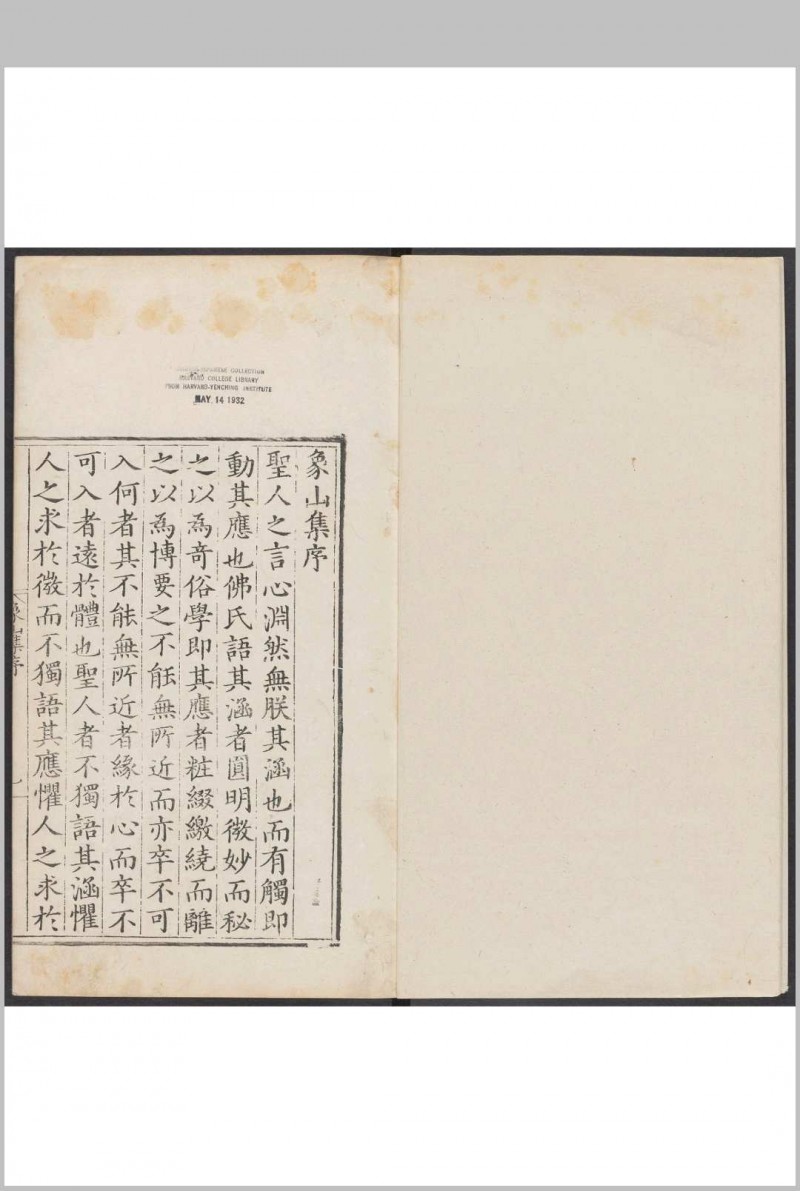 象山集序
聖人之言心淵然無朕其涵也而有觸即
動其應也佛氏語其涵者圓明微妙而秘
之以為奇俗學即其應者粧綴繳繞而離
之以為博要之不能無所近而亦卒不可
入何者其不能無所近者緣於心而卒不
可入者遠於體也聖人者不獨語其涵懼
人之求於微而不獨語其應懼人之求於
象山集序
COLLEGE LIBRARY
FROM HARVARD-YENCHING INSTITUTE
MAY 14 1932